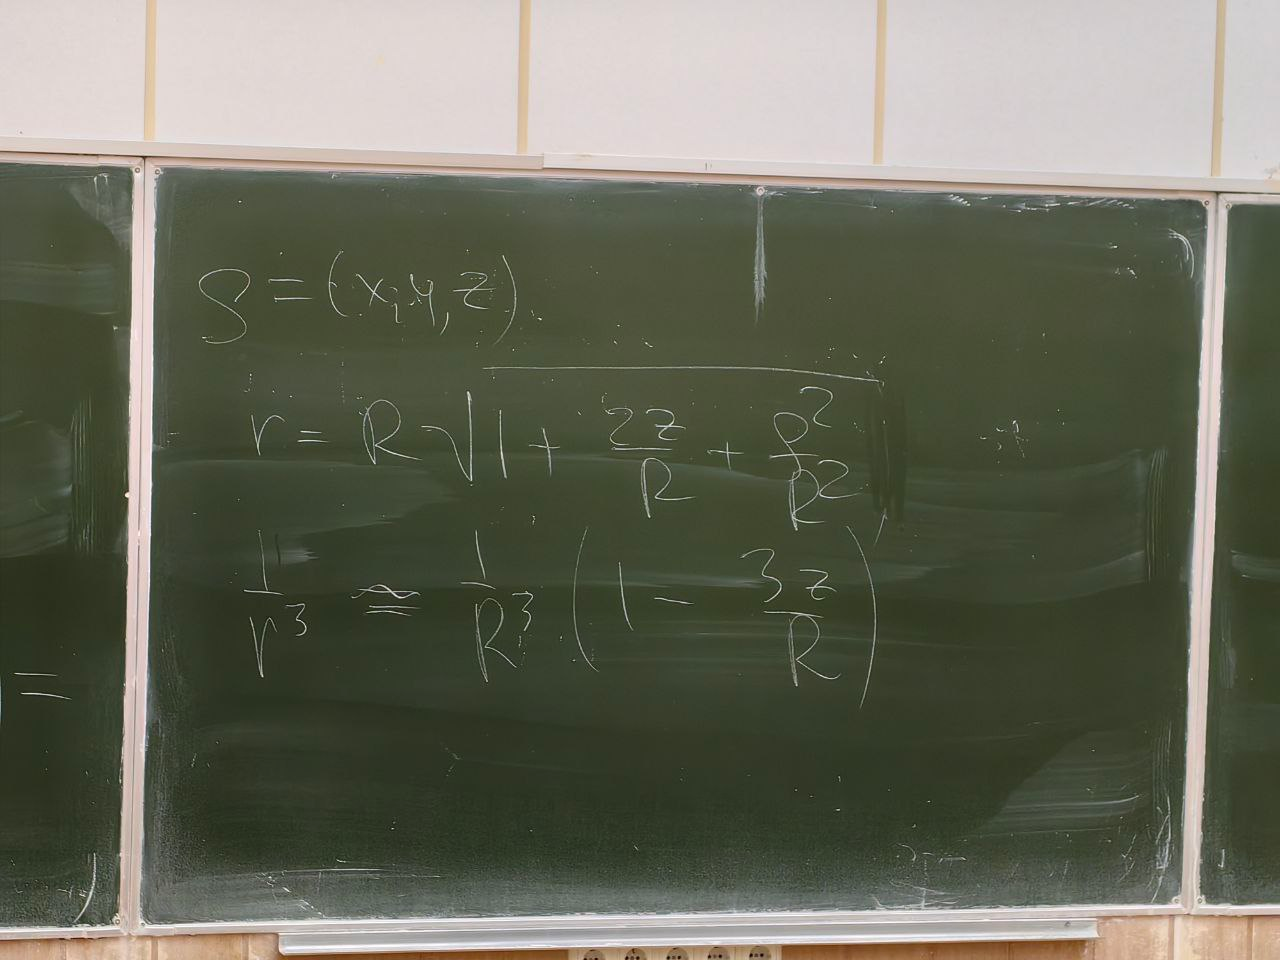 ρ = (x, y, z)
r = R √(1 + 2z/R + ρ²/R²)
1/r³ ≅ 1/R³ (1 − 3z/R)
=